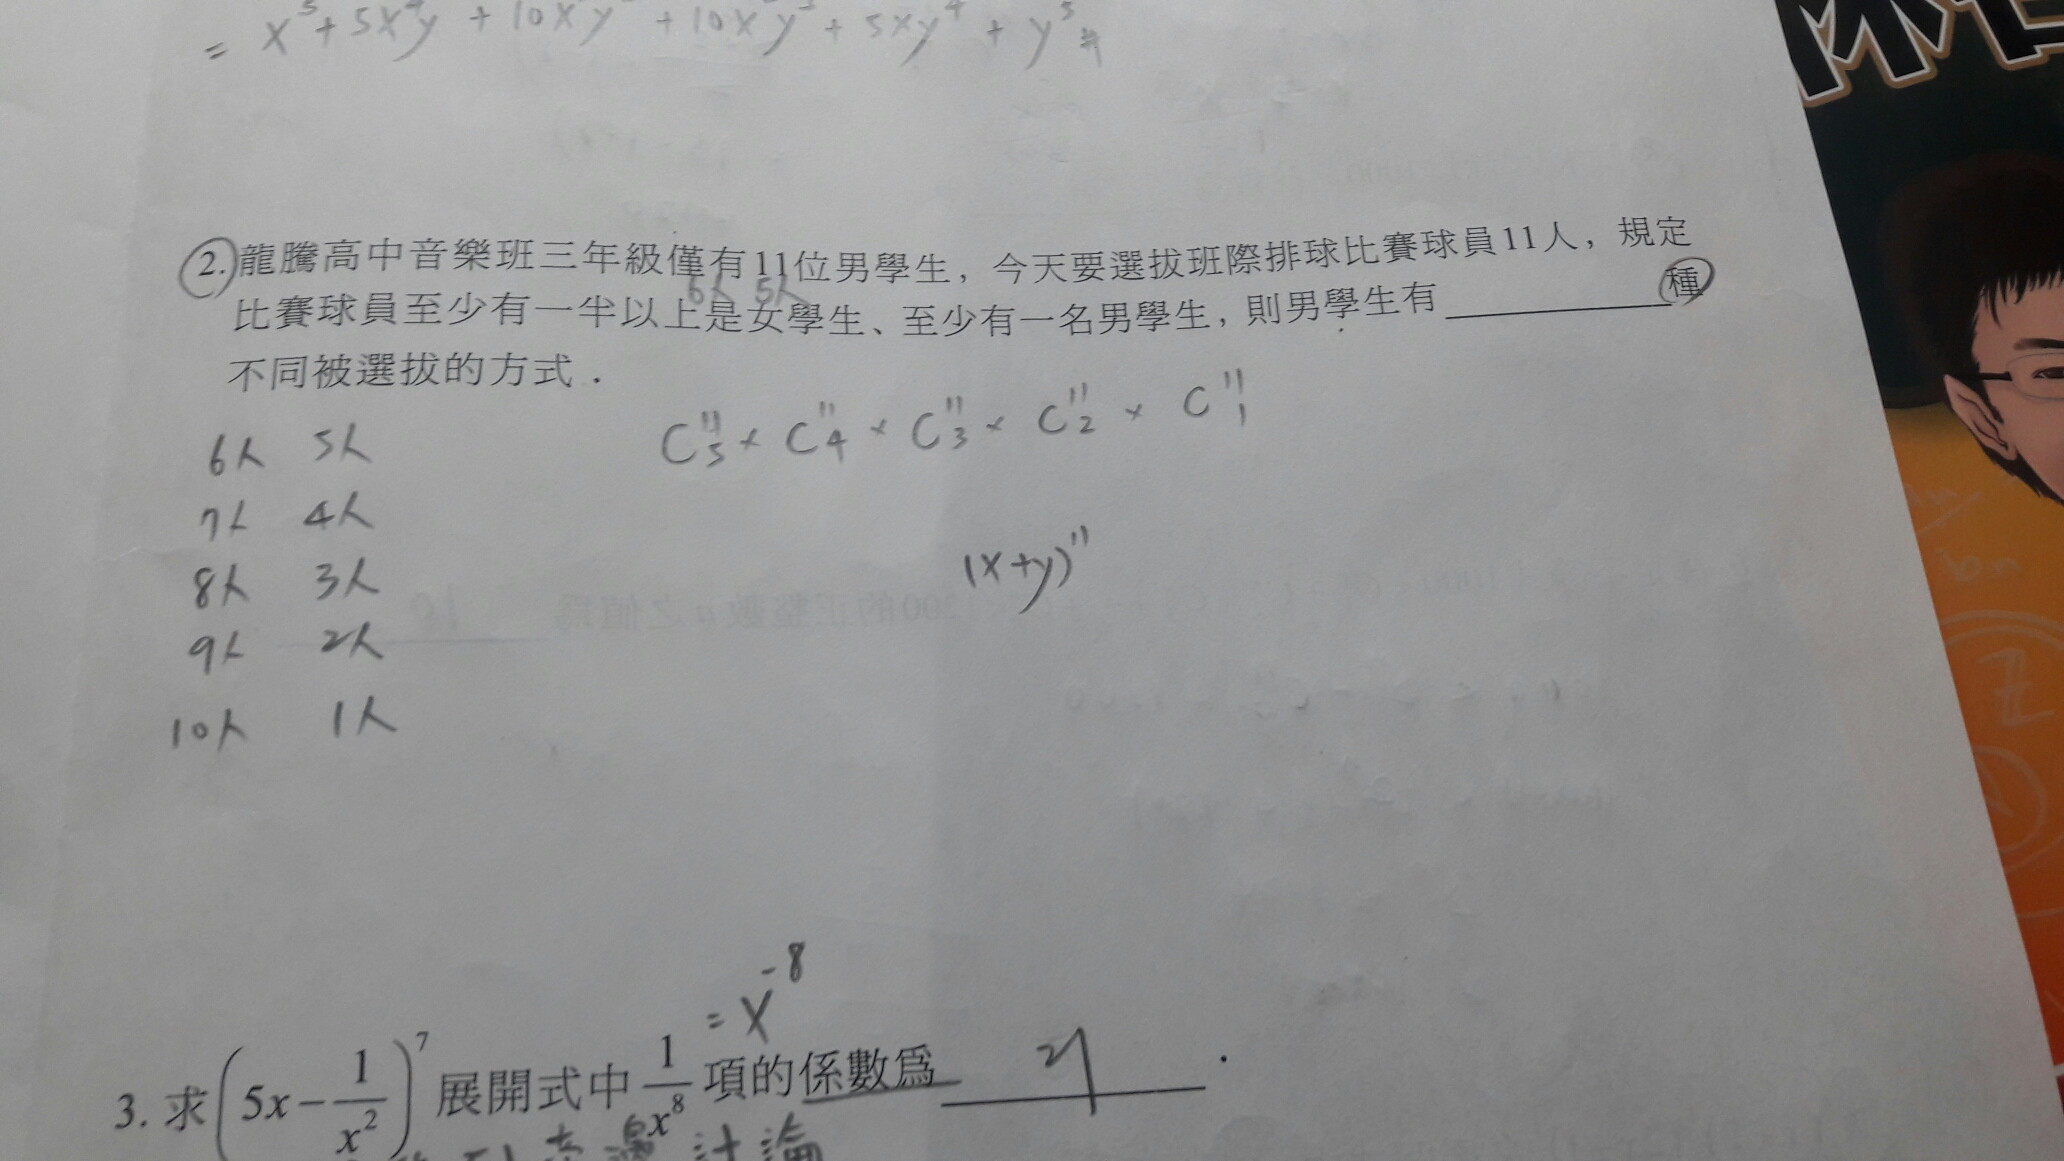 = x⁵ + 5x⁴y + 10x³y² + 10x²y³ + 5xy⁴ + y⁵ #
2. 龍騰高中音樂班三年級僅有11位男學生，今天要選拔班際排球比賽球員11人，規定
6人 5人
比賽球員至少有一半以上是女學生、至少有一名男學生，則男學生有＿＿＿＿種
不同被選拔的方式．
6人 5人
C¹¹₅ × C¹¹₄ × C¹¹₃ × C¹¹₂ × C¹¹₁
7人 4人
(x+y)¹¹
8人 3人
9人 2人
10人 1人
= x⁻⁸
3. 求(5x − 1/x²)⁷ 展開式中 1/x⁸ 項的係數爲 21 ．
討論